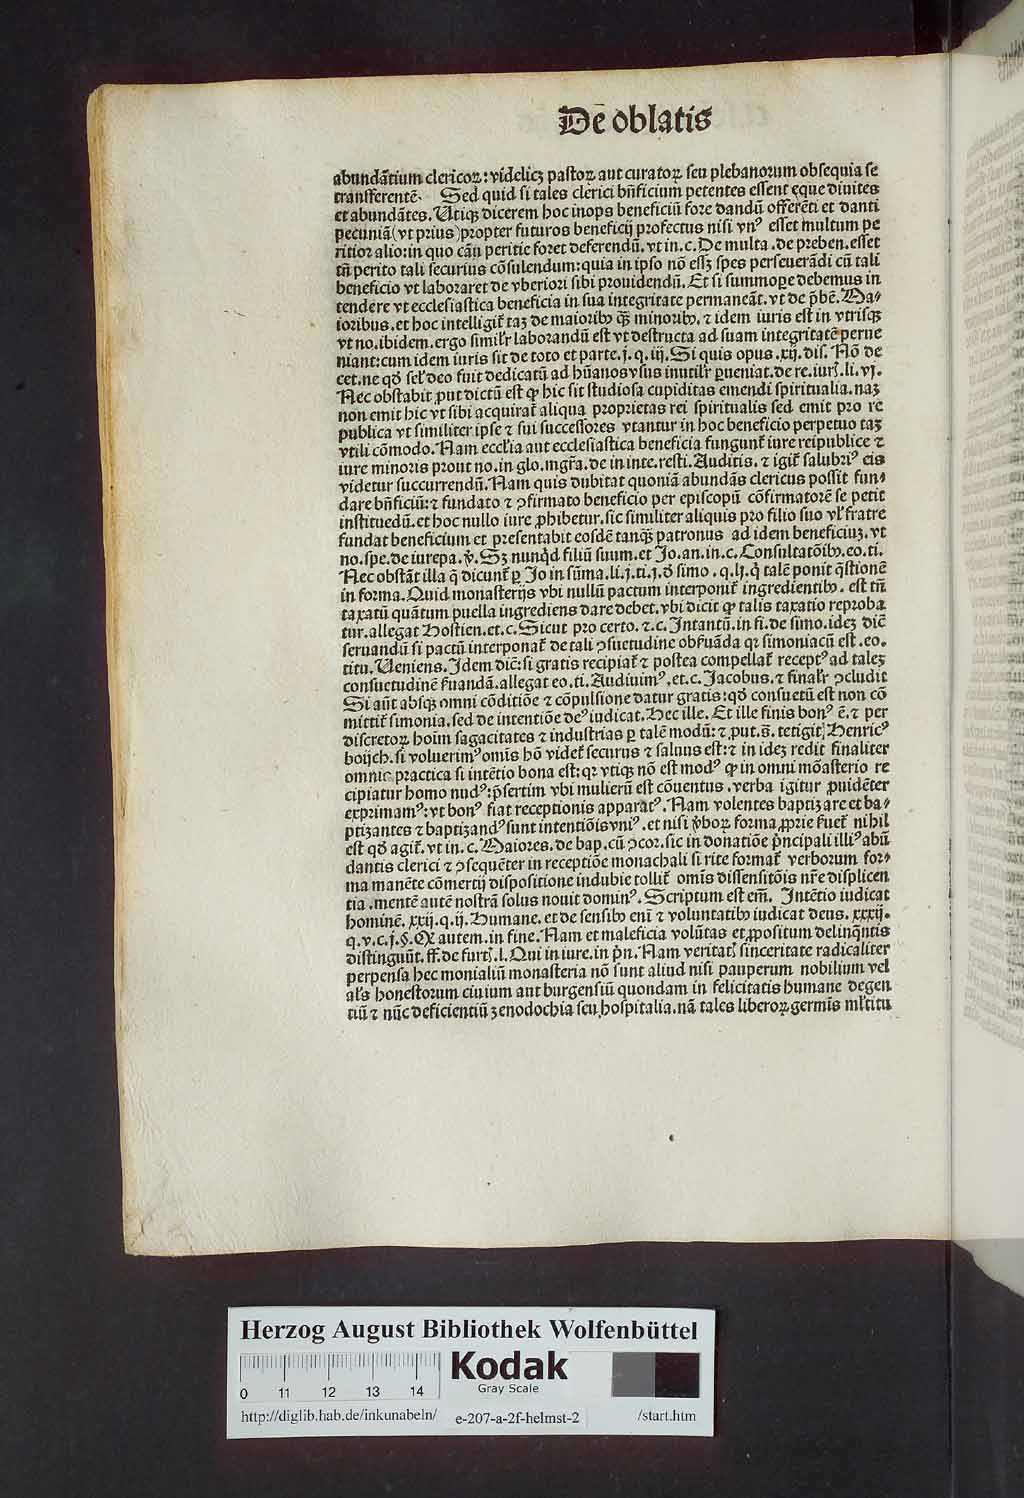 Dē oblatis
abundãtium clericoꝝ: videlicꝫ pastoꝝ aut curatoꝝ seu plebanorum obsequia se
transfferentē. Sed quid si tales clerici bn̄ficium petentes essent eque diuites
et abundãtes. Utiqꝫ dicerem hoc inops beneficiū fore dandū offerēti et danti
pecuniã (vt prius) propter futuros beneficij profectus nisi vnꝰ esset multum pe
ritior alio: in quo cãu peritie foret deferendū. vt in. c. De multa. de preben. esset
tn̄ perito tali securius cōsulendum: quia in ipso nō essꝫ spes perseuerãdi cū tali
beneficio vt laboraret de vberiori sibi prouidendū. Et si summoꝑe debemus in
tendere vt ecclesiastica beneficia in sua integritate permaneãt. vt de p̄bē. Ma⸗
ioribus. et hoc intelligit̄ taꝫ de maioribꝫ qꝫ̄ minoribꝫ. ⁊ idem iuris est in vtrisqꝫ
vt no. ibidem. ergo simil'r laborandū est vt destructa ad suam integritatē perue
niant: cum idem iuris sit de toto et parte. j. q. iij. Si quis opus. xij. dis. Nō de
cet. ne qd̄ sel' deo fuit dedicatū ad hūanos vsus inutil'r ꝑueniat. de re. iurꝭ. li. vj.
Nec obstabit ꝓut dictū est ꝙ hic sit studiosa cupiditas emendi spiritualia. naꝫ
non emit hic vt sibi acquirat̄ aliqua proprietas rei spiritualis sed emit pro re
publica vt similiter ipse ⁊ sui successores vtantur in hoc beneficio perpetuo taꝫ
vtili cōmodo. Nam eccl'ia aut ecclesiastica beneficia fungunt̄ iure reipublice ⁊
iure minoris prout no. in glo. mgr̄a. de in inte. resti. Auditis. ⁊ igit̄ salubriꝰ eis
videtur succurrendū. Nam quis dubitat quoniã abundãs clericus possit fun⸗
dare bn̄ficiū: ⁊ fundato ⁊ ꝯfirmato beneficio per episcopū cōfirmatorē se petit
instituedū. et hoc nullo iure ꝓhibetur. sic similiter aliquis pro filio suo vl' fratre
fundat beneficium et presentabit eosdē tanqꝫ̄ patronus ad idem beneficiuꝫ. vt
no. spe. de iurepa. v̄. Sꝫ nunqd̄ filiū suum. et Jo. an. in. c. Consultatōibꝫ. eo. ti.
Nec obstãt illa q̄ dicunt̄ ꝑ Jo in sūma. li. j. ti. j. d̄ simo. q. lj. q̄ talē ponit q̄stionē
in forma. Quid monasterijs vbi nullū pactum interponit̄ ingredientibꝫ. est tn̄
taxatū quãtum puella ingrediens dare debet. vbi dicit ꝙ talis taxatio reproba
tur. allegat Hostien. et. c. Sicut pro certo. ⁊. c. Jntantū. in fi. de simo. ideꝫ dic̄
seruandū si pactū interponat̄ de tali ꝯsuetudine obs̄uãda qꝛ simoniacū est. eo.
titu. Ueniens. Jdem dic̄: si gratis recipiat̄ ⁊ postea compellat̄ receptꝰ ad taleꝫ
consuetudinē s̄uandã. allegat eo. ti. Audiuimꝰ. et. c. Jacobus. ⁊ final'r ꝯcludit
Si aūt absqꝫ omni cōditiōe ⁊ cōpulsione datur gratis: qd̄ consuetū est non cō
mittit̄ simonia. sed de intentiōe deꝰ iudicat. Hec ille. Et ille finis bonꝰ ē. ⁊ per
discretoꝝ hoīm sagacitates ⁊ industrias ꝑ talē modū: ⁊ ꝓut. s̄. tetigit Henricꝰ
boijch. si voluerimꝰ omīs hō videt̄ securus ⁊ saluus est: ⁊ in ideꝫ redit finaliter
omnis practica si intētio bona est: qꝛ vtiqꝫ nō est modꝰ ꝙ in omni mōasterio re
cipiatur homo nudꝰ: p̄sertim vbi mulierū est cōuentus. verba igitur ꝓuidēter
exprimamꝰ: vt bonꝰ fiat receptionis apparatꝰ. Nam volentes baptizare et ba⸗
ptizantes ⁊ baptizandꝰ sunt intentiōis vniꝰ. et nisi v̄boꝝ forma ꝓprie s̄uet̄ nihil
est qd̄ agit̄. vt in. c. Maiores. de bap. cū ꝯcor. sic in donatiōe p̄ncipali illiꝰ abū
dantis clerici ⁊ ꝯsequēter in receptiōe monachali si rite format̄ verborum for⸗
ma manēte cōmertij dispositione indubie tollit̄ omīs dissensitōis nr̄e displicen
tia. mentē autē nostrã solus nouit dominꝰ. Scriptum est em̄. Jntētio iudicat
hominē. xxij. q. ij. Humane. et de sensibꝫ enī ⁊ voluntatibꝫ iudicat deus. xxxij.
q. v. c. j. §. Ex autem. in fine. Nam et maleficia volūtas et ꝓpositum delinq̄ntis
distinguūt. ff. de furtꝭ. l. Qui in iure. in p̄n. Nam veritatꝭ sinceritate radicaliter
perpensa hec monialiū monasteria nō sunt aliud nisi pauperum nobilium vel
al's honestorum ciuium aut burgensiū quondam in felicitatis humane degen
tiū ⁊ nūc deficientiū ꝫenodochia seu hospitalia. nã tales liberoꝝ germīs ml'titu
Herzog August Bibliothek Wolfenbüttel
Kodak
Gray Scale
0 11 12 13 14
http://diglib.hab.de/inkunabeln/ e-207-a-2f-helmst-2 /start.htm